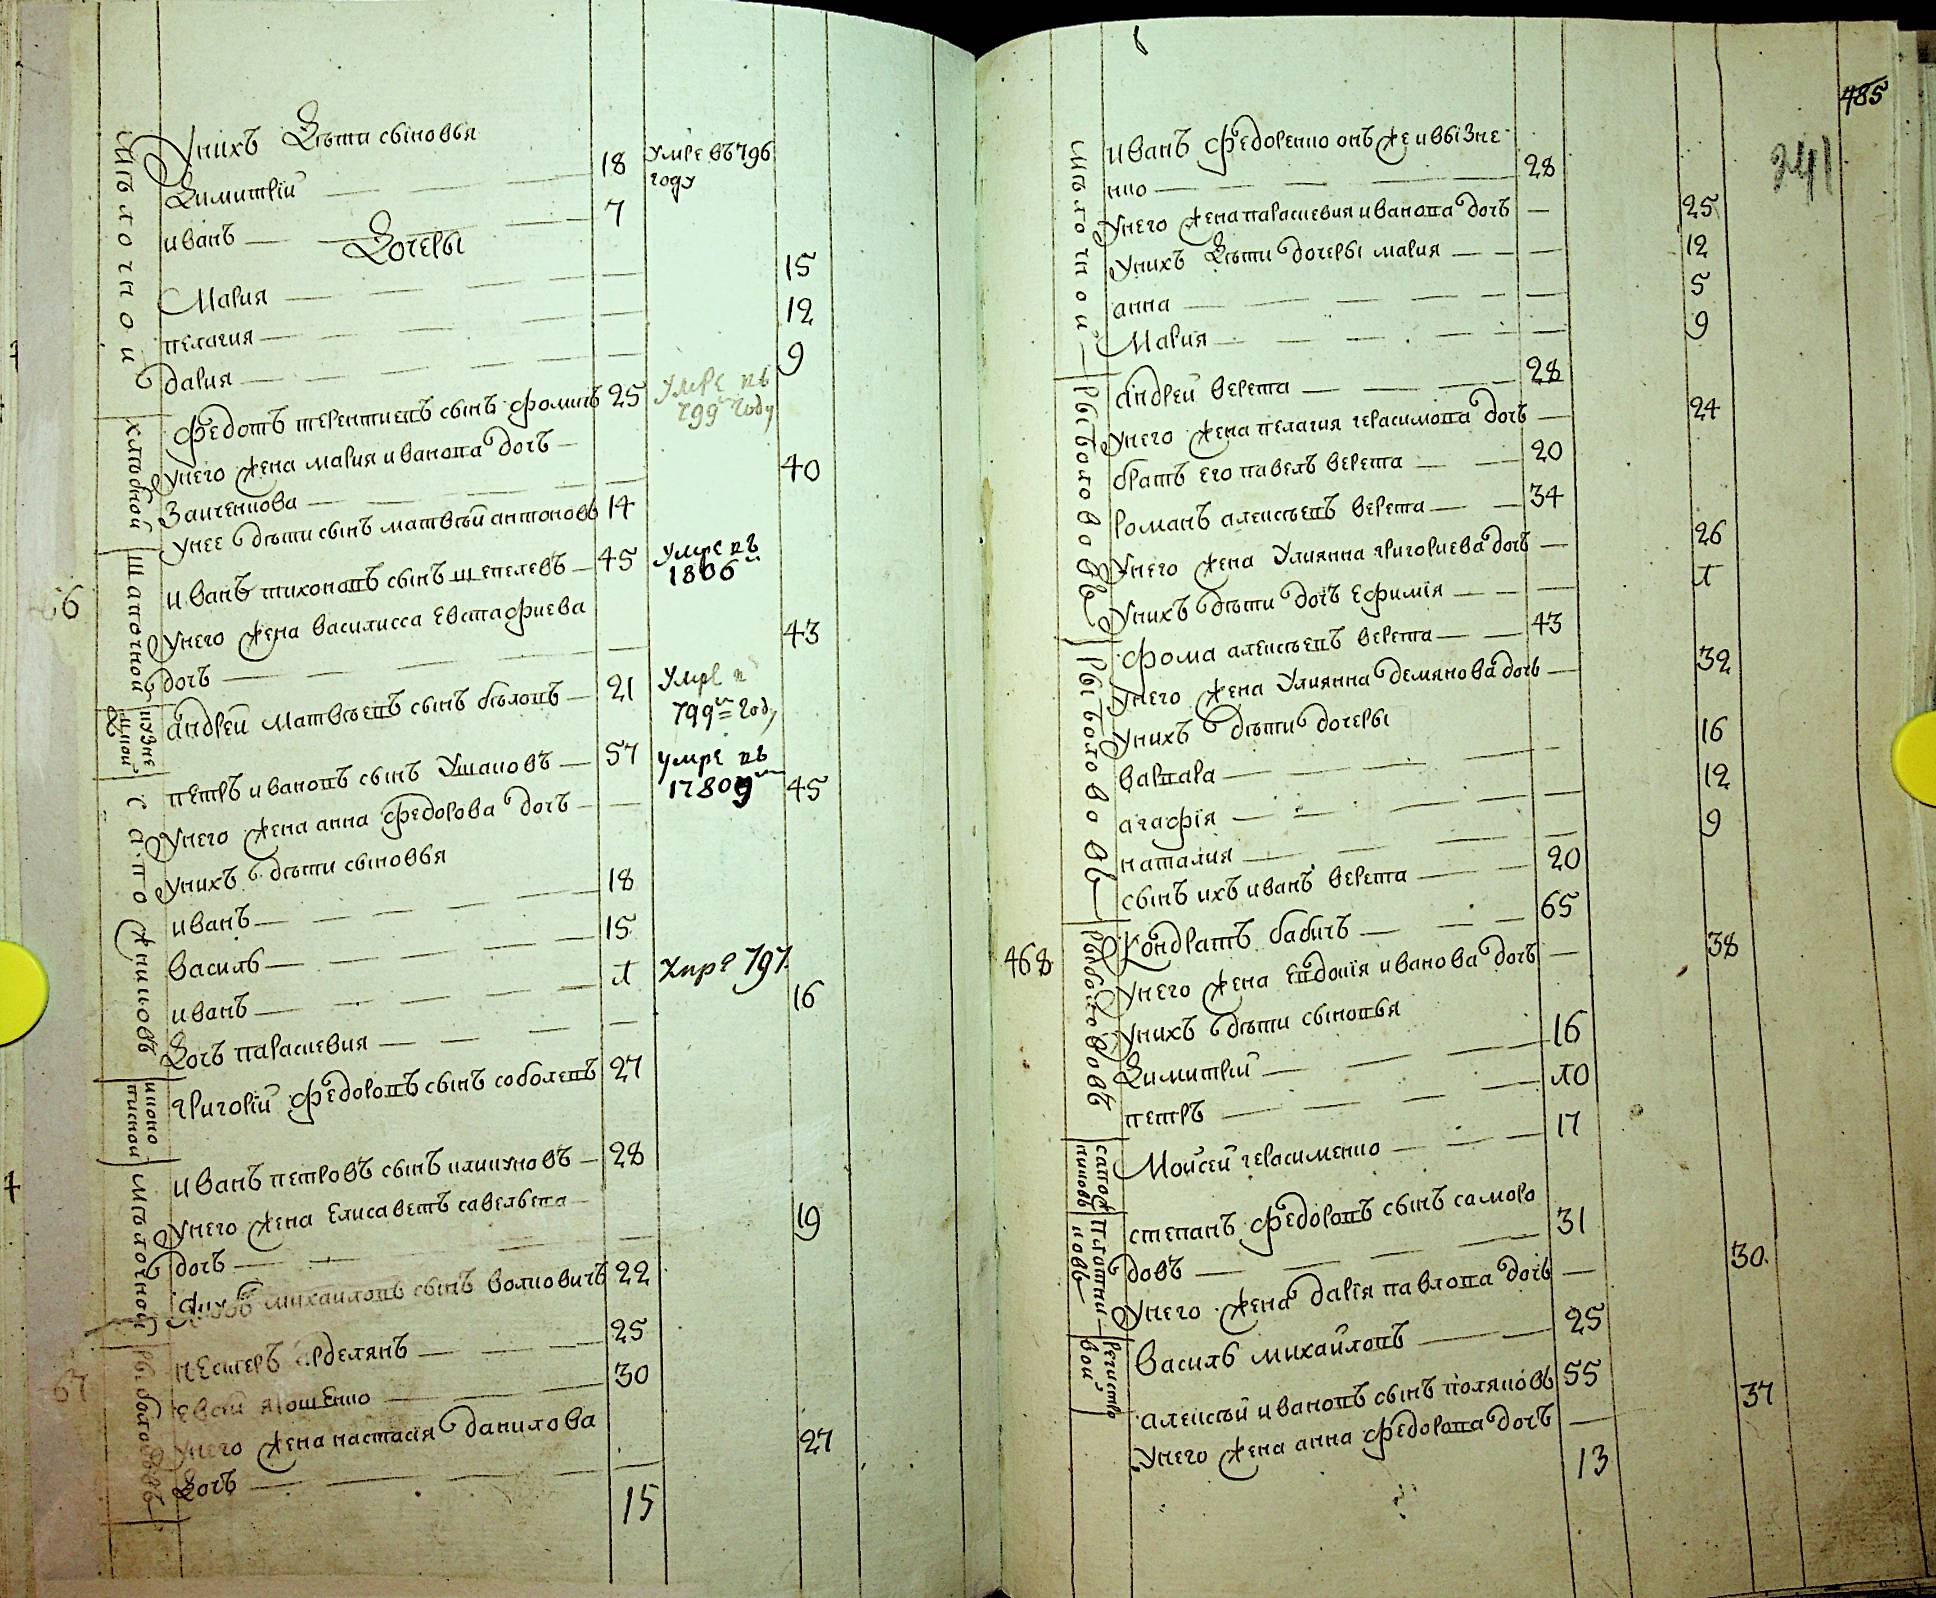 Мѣлочной
Унихъ Дѣти сыновья
Димитрій 18 умре въ 796
году
иванъ 7
Дочеры
Мария 15
пелагия 12
дария 9
хлѣбной
федотъ терентиевъ сынъ фоминъ 25 умре въ
799м году
унего жена мария иванова дочь
Заиченкова 40
унее дѣти сынъ матвѣй антоновъ 14
66
шапочной
иванъ тихоновъ сынъ щепелевъ 45 умре въ
1806м
унего жена василисса Евстафиева
дочь 43
кузнешной
андрей матвѣевъ сынъ бѣловъ 21 умре в
799м году
сапожниковъ
петръ ивановъ сынъ Ушаковъ 57 умре въ
17809м
унего жена анна федорова дочь 45
унихъ дѣти сыновья
иванъ 18
василь 15
иванъ 1 умре 797
Дочь параскевия 16
иконописной
григорій федоровъ сынъ соболевъ 27
Мѣлочной
иванъ петровъ сынъ кликуновъ 28
унего жена Елисаветъ савельева
дочь 19
михаиловъ сынъ волковичъ 22
67
рыболововъ
нестеръ 25
30
унего жена настасія данилова
Дочь 27
15
485
241
Мѣлочной
иванъ федоренко онъ же ивызне
нко 28
унего жена параскевия иванова дочь 25
унихъ Дѣти дочеры мария 12
анна 5
Мария 9
рыболововъ
андрей верета 28
унего жена пелагия герасимова дочь 24
братъ его павелъ верета 20
романъ алексѣевъ верета 34
унего жена Улиянна григориева дочь 26
унихъ дѣти дочь Ефимія 1
рыболововъ
фома алексѣевъ верета 43
унего жена Улиянна демянова дочь 32
унихъ дѣти дочеры
варвара 16
агафія 12
наталия 9
сынъ ихъ иванъ верета 20
468
рыболововъ
Кондратъ бабичъ 65
унего жена Евдокія иванова дочь 38
унихъ дѣти сыновья
Димитрій 16
петръ 10
сапожниковъ
Моисей герасименко 17
плотниковъ
степанъ федоровъ сынъ саморо
довъ 31
унего жена дарія павлова дочь 30
регистровой
василь михайловъ 25
алексѣй ивановъ сынъ поляковъ 55
унего жена анна федорова дочь 37
13